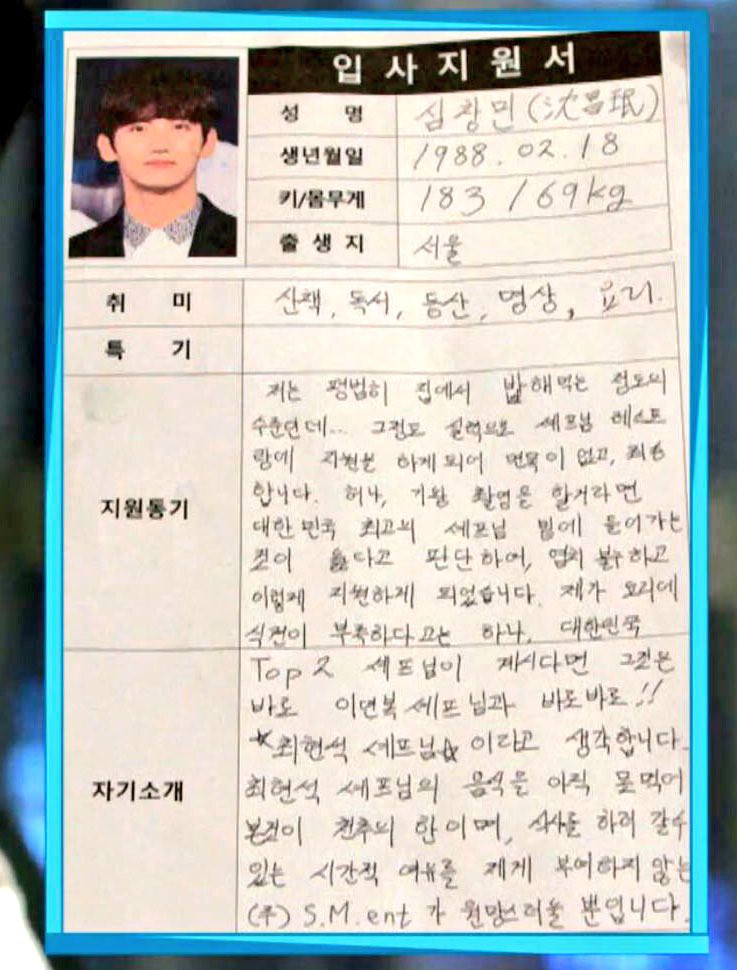 입사지원서
성 명 심창민(沈昌珉)
생년월일 1988.02.18
키/몸무게 183/69kg
출생지 서울
취 미 산책, 독서, 등산, 명상, 요리.
특 기
지원동기
저는 평범히 집에서 밥해먹는 정도의
수준인데... 그정도 실력으로 셰프님 레스토
랑에 지원을 하게 되어 면목이 없고, 죄송
합니다. 허나, 기왕 촬영을 할거라면
대한민국 최고의 셰프님 밑에 들어가는
것이 옳다고 판단하여, 염치 불구하고
이렇게 지원하게 되었습니다. 제가 요리에
식견이 부족하다고는 하나, 대한민국
자기소개
Top 2 셰프님이 계시다면 그것은
바로 이연복 셰프님과 바로바로!!
☆최현석 셰프님☆ 이라고 생각합니다.
최현석 셰프님의 음식을 아직 못먹어
본것이 천추의 한이며, 식사를 하러 갈수
있는 시간적 여유를 제게 부여하지 않는
(주) S.M.ent가 원망스러울 뿐입니다.